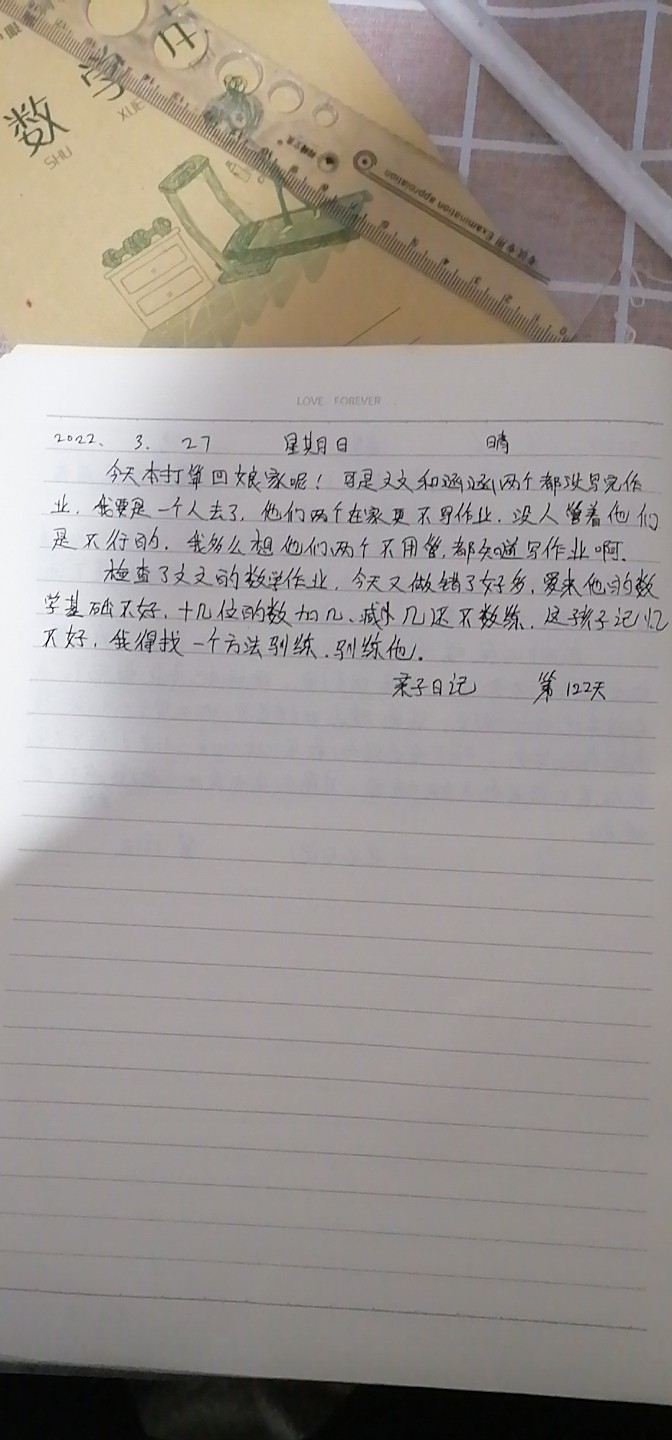 数学
SHU XUE
Examination approlation
LOVE FOREVER
2022. 3. 27 星期日 晴
今天本打算回娘家呢！可是文文和涵涵两个都没写完作
业，我要是一个人去了，他们两个在家更不写作业，没人管着他们
是不行的，我多么想他们两个不用管，都知道写作业啊。
检查了文文的数学作业，今天又做错了好多，要来他的数
学基础不好，十几位的数加几、减几还不数练，这孩子记忆
不好，我得找一个方法驯练，驯练他。
亲子日记 第122天